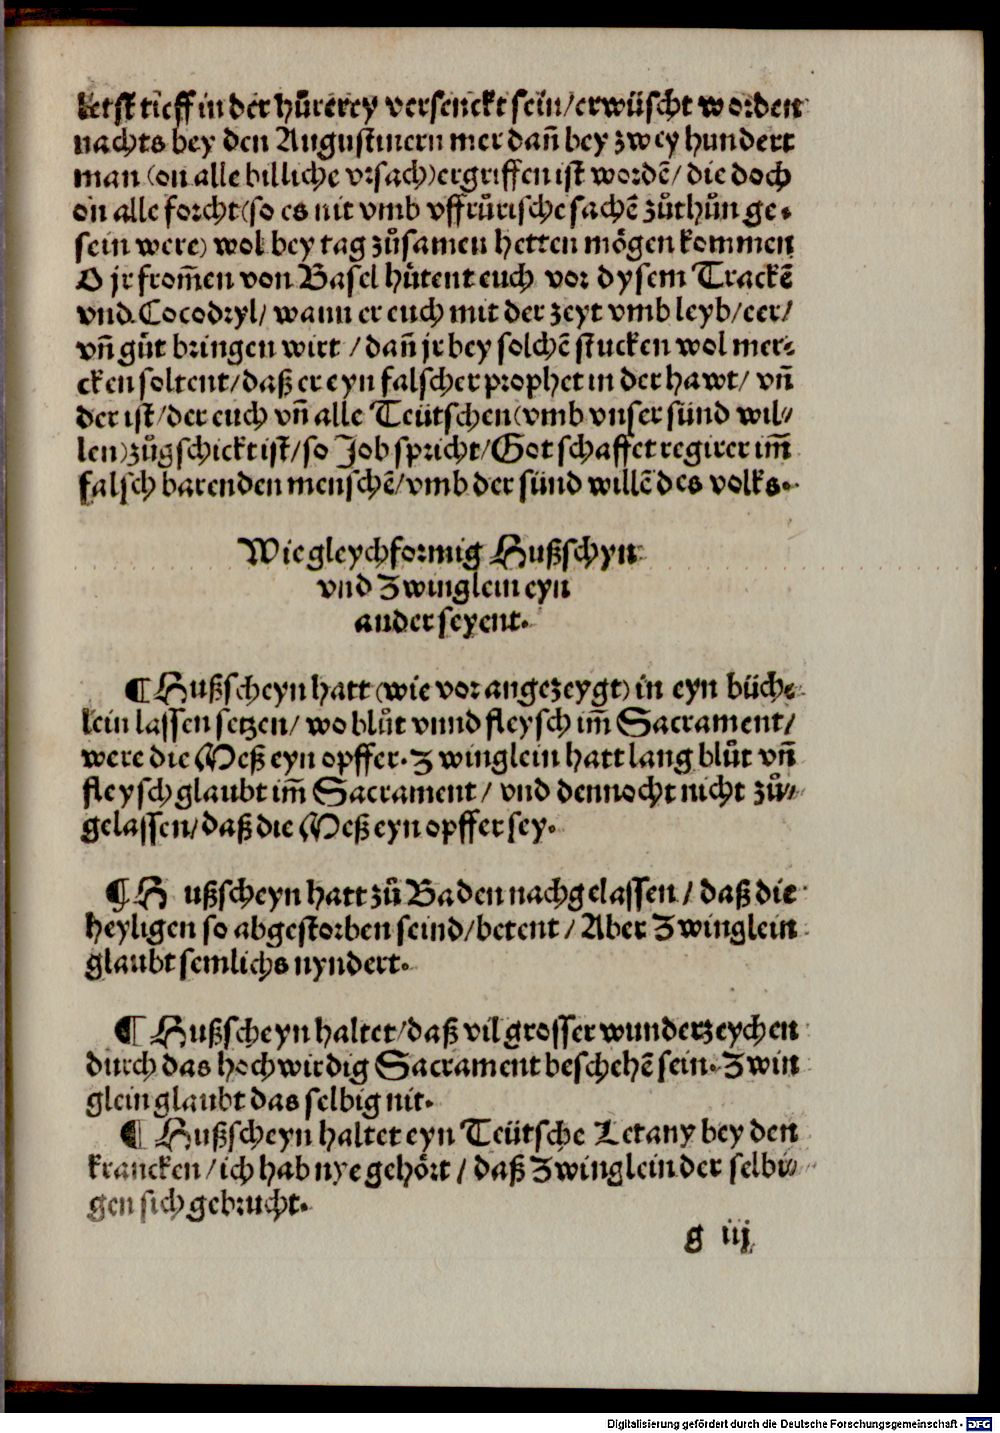 letst tieff in der hůrerey versenckt sein/erwüscht worden
nachts bey den Augustinern mer dañ bey zwey hundert
man (on alle billiche vrsach) ergriffen ist wordẽ/ die doch
on alle forcht (so es nit vmb vffrůrische sachẽ zůthůn ge-
sein were) wol bey tag zůsamen hetten mögen kommen
O jr from̃en von Basel hůtent euch vor dysem Trackẽ
vnd Cocodryl/ wann er euch mit der zeyt vmb leyb/eer/
vñ gůt bringen wirt / dañ jr bey solchẽ stucken wol mer-
cken soltent/daß er eyn falscher prophet in der hawt/ vñ
der ist/der euch vñ alle Teütschen (vmb vnser sünd wil-
len) zůgschickt ist/so Job spricht/Got schaffet regirer im̃
falsch barenden menschẽ/vmb der sünd willẽ des volks.
Wie gleychformig Hußschyn
vnd Zwinglein eyn
ander seyent.
¶ Hußscheyn hatt (wie vor angezeygt) in eyn büch-
lein lassen setzen/ wo blůt vnnd fleysch im̃ Sacrament/
were die Meß eyn opffer. Zwinglein hatt lang blůt vñ
fleysch glaubt im̃ Sacrament / vnd dennocht nicht zů-
gelassen/daß die Meß eyn opffer sey.
¶ Hußscheyn hatt zů Baden nachgelassen / daß die
heyligen so abgestorben seind/betent / Aber Zwinglein
glaubt semlichs nyndert.
¶ Hußscheyn haltet/daß vil grosser wunderzeychen
durch das hochwirdig Sacrament beschehẽ sein. Zwin
glein glaubt das selbig nit.
¶ Hußscheyn haltet eyn Teütsche Letany bey den
krancken / ich hab nye gehört / daß Zwinglein der selbi-
gen sich gebrucht.
g iij
Digitalisierung gefördert durch die Deutsche Forschungsgemeinschaft - DFG